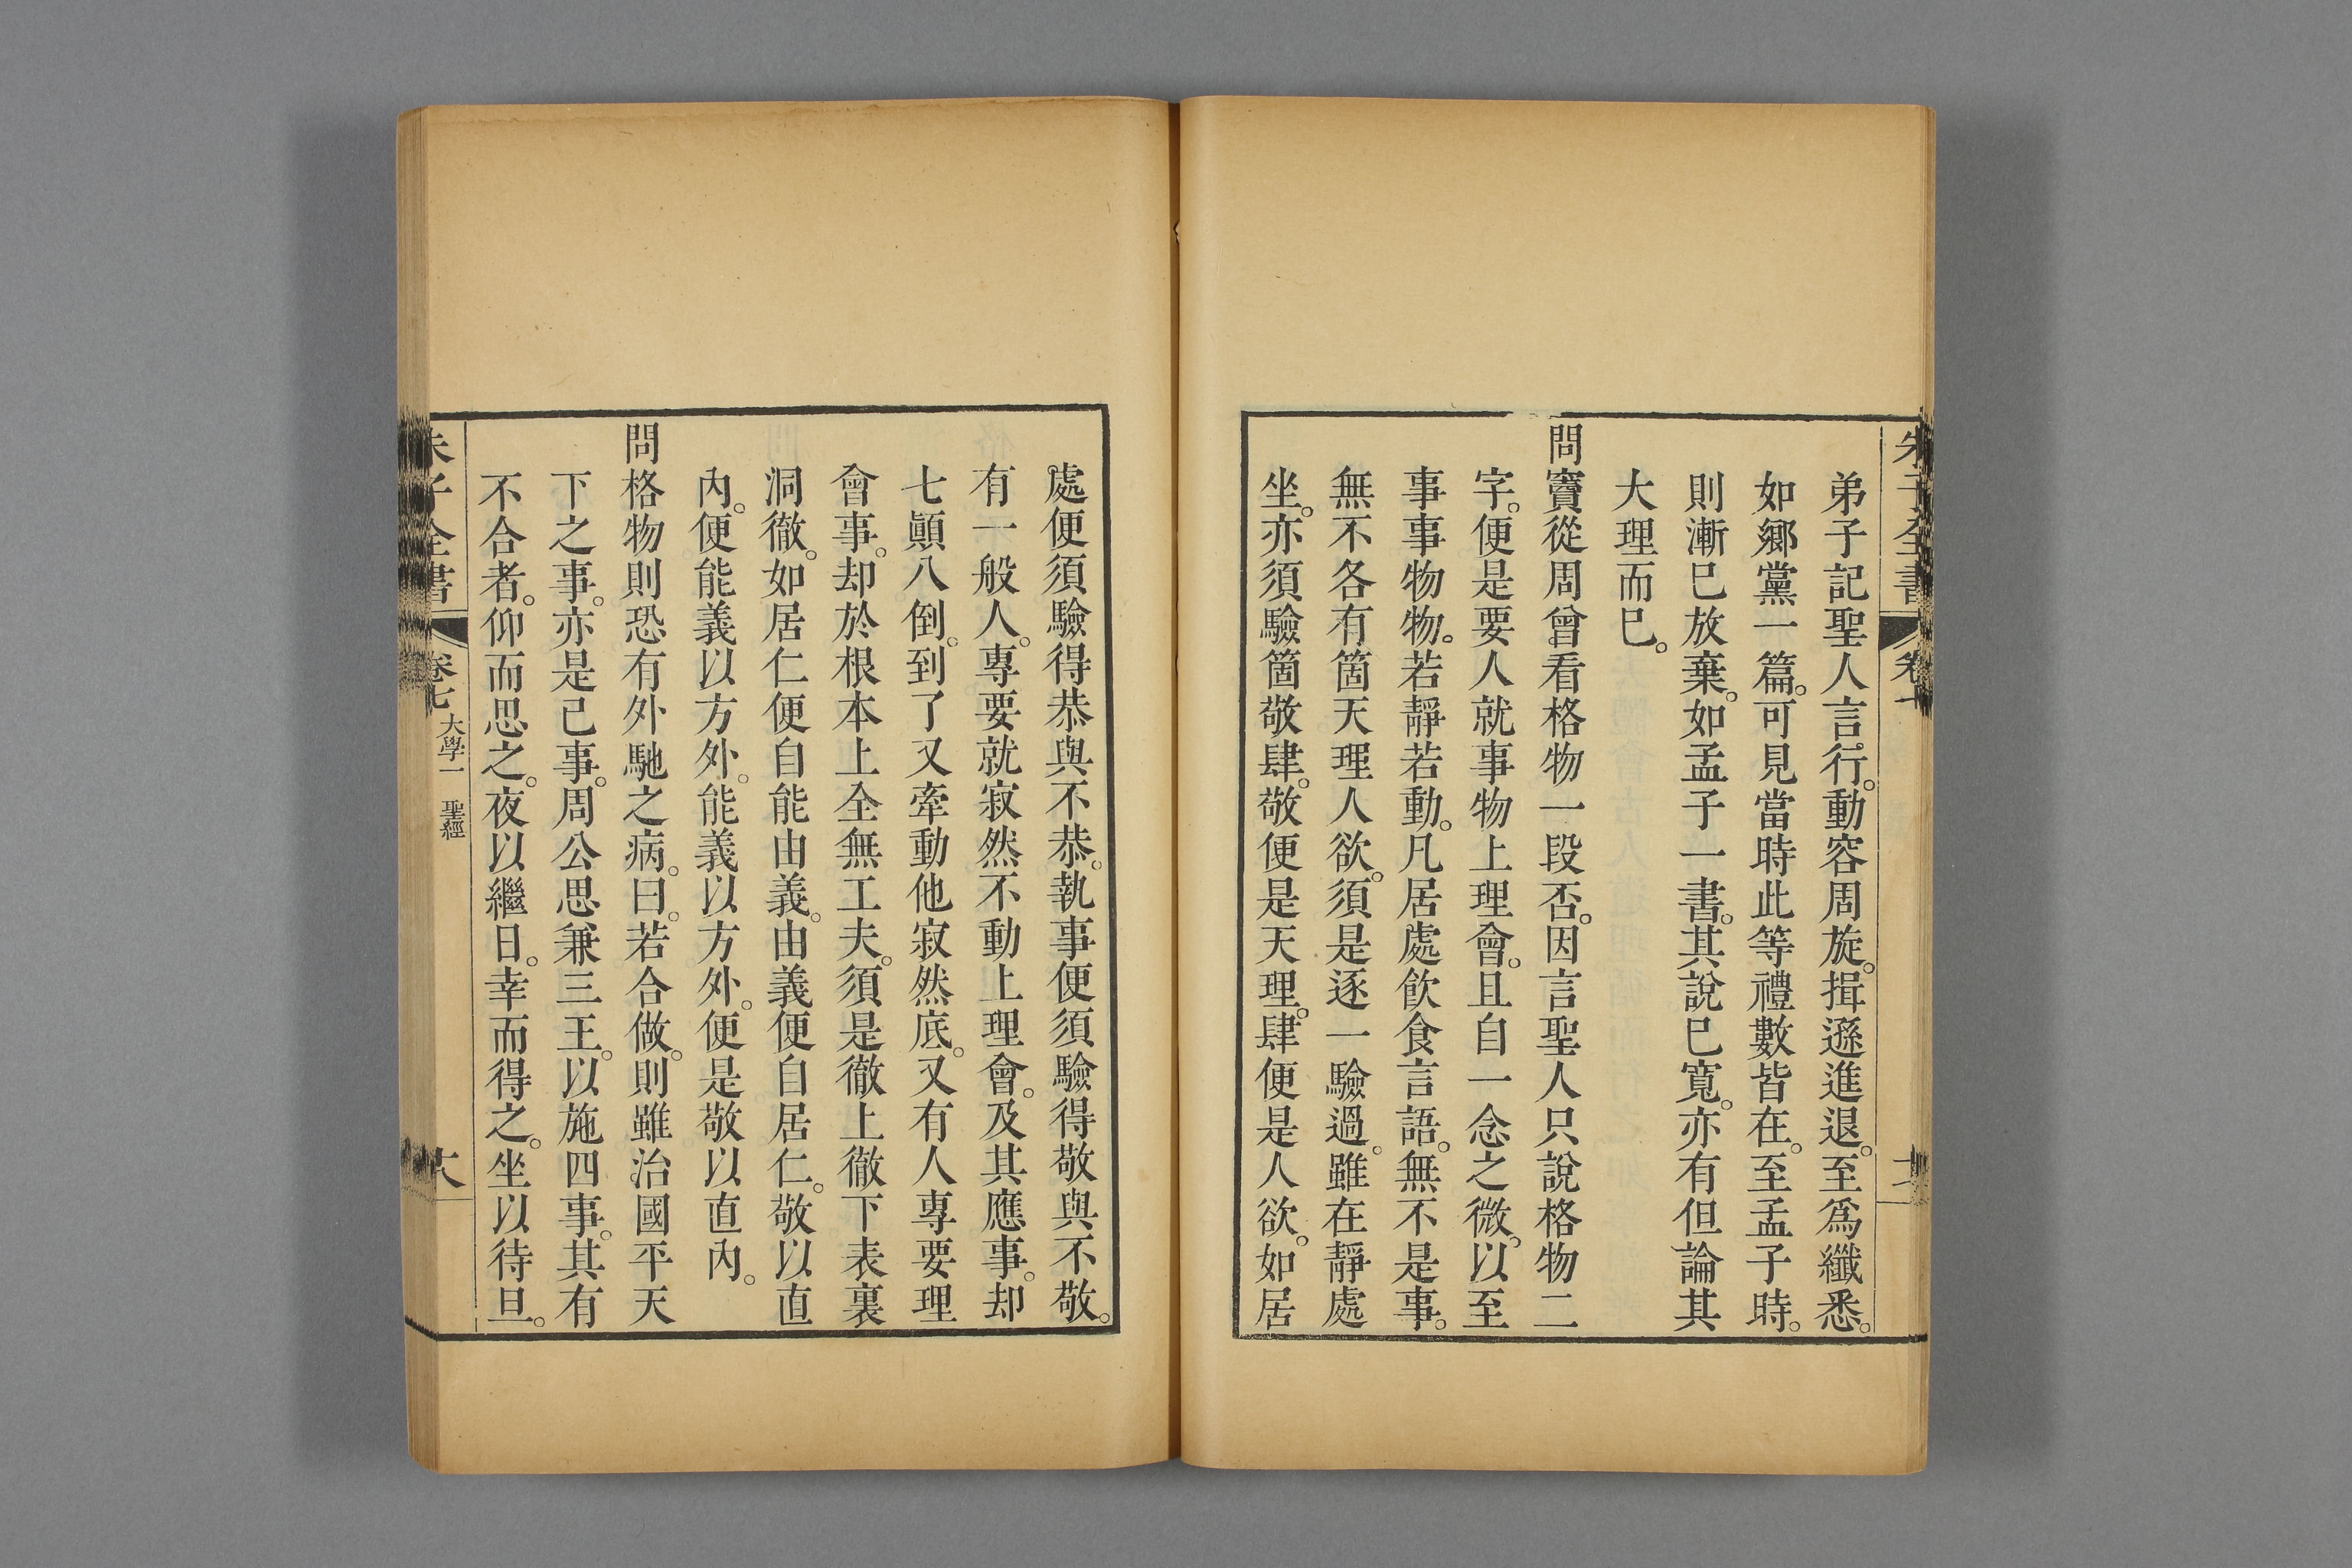 弟子記聖人言行。動容周旋。揖遜進退。至爲纖悉。
如鄉黨一篇。可見當時此等禮數皆在。至孟子時。
則漸已放棄。如孟子一書。其說已寬。亦有但論其
大理而已。
問竇從周曾看格物一段否。因言聖人只說格物二
字。便是要人就事物上理會。且自一念之微。以至
事事物物。若靜若動。凡居處飲食言語。無不是事。
無不各有箇天理人欲。須是逐一驗過。雖在靜處
坐。亦須驗箇敬肆。敬便是天理。肆便是人欲。如居
處便須驗得恭與不恭。執事便須驗得敬與不敬。
有一般人。專要就寂然不動上理會。及其應事。却
七顚八倒。到了又牽動他寂然底。又有人專要理
會事。却於根本上全無工夫。須是徹上徹下表裏
洞徹。如居仁便自能由義。由義便自居仁。敬以直
內。便能義以方外。能義以方外。便是敬以直內。
問格物則恐有外馳之病。曰。若合做。則雖治國平天
下之事。亦是己事。周公思兼三王。以施四事。其有
不合者。仰而思之。夜以繼日。幸而得之。坐以待旦。
朱子全書 卷七 大學一 聖經